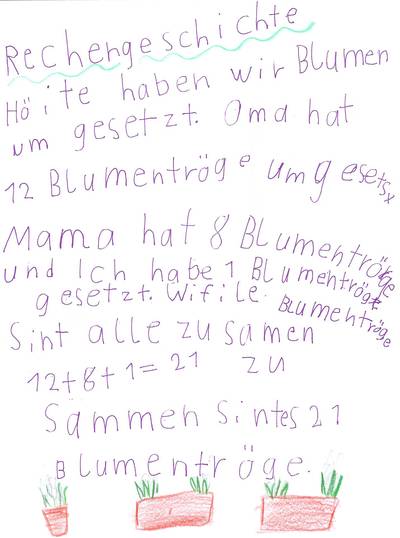 Rechengeschichte
Höite haben wir Blumen
um gesetzt. Oma hat
12 Blumentröge umgesetsx
Mama hat 8 Blumentröge
und Ich habe 1 Blumentröge
gesetzt. Wifile Blumentröge
Sint alle zu samen
12+8+1=21 zu
Sammen Sintes 21
Blumentröge.